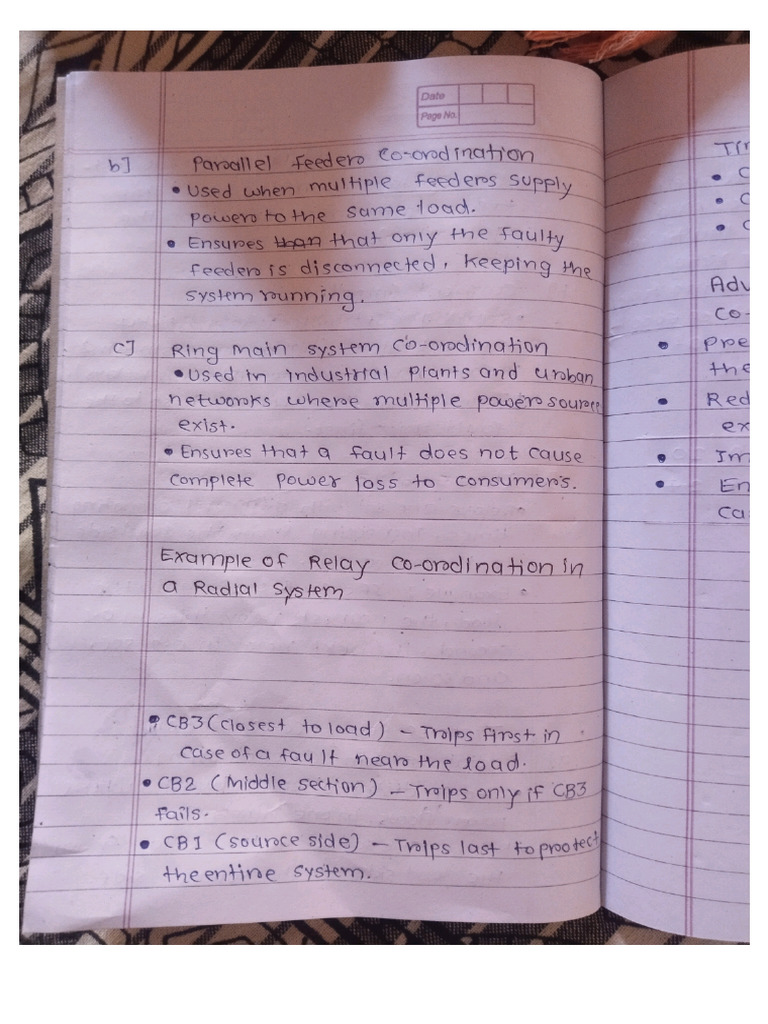 Date
Page No.
b] Parallel feeders Co-ordination
• Used when multiple feeders supply
power to the same load.
• Ensures than that only the faulty
feeder is disconnected, keeping the
system running.
c] Ring main system Co-ordination
• Used in industrial plants and urban
networks where multiple power source
exist.
• Ensures that a fault does not cause
complete power loss to consumers.
Example of Relay Co-ordination in
a Radial System
• CB3 (closest to load) – Trips first in
case of a fault near the load.
• CB2 (Middle section) – Trips only if CB3
fails.
• CB1 (source side) – Trips last to protect
the entire system.
Adv
Co-
• Pre
the
• Red
ex
• Im
• En
ca